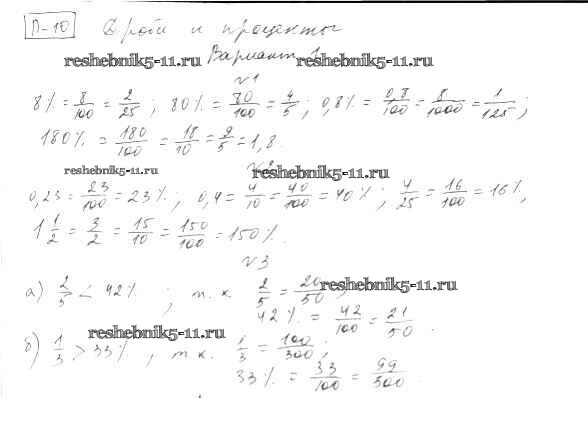 П-10 Дроби и проценты
reshebnik5-11.ru Вариант 1 reshebnik5-11.ru
№1
8% = 8/100 = 2/25 ; 80% = 80/100 = 4/5 ; 0,8% = 0,8/100 = 8/1000 = 1/125 ;
180% = 180/100 = 18/10 = 9/5 = 1,8.
reshebnik5-11.ru №2 reshebnik5-11.ru
0,23 = 23/100 = 23% ; 0,4 = 4/10 = 40/100 = 40% ; 4/25 = 16/100 = 16%,
1 1/2 = 3/2 = 15/10 = 150/100 = 150%.
№3
а) 2/5 < 42% ; т.к 2/5 = 20/50 ; reshebnik5-11.ru
42% = 42/100 = 21/50.
reshebnik5-11.ru
б) 1/3 > 33% , т.к. 1/3 = 100/300 ;
33% = 33/100 = 99/300.